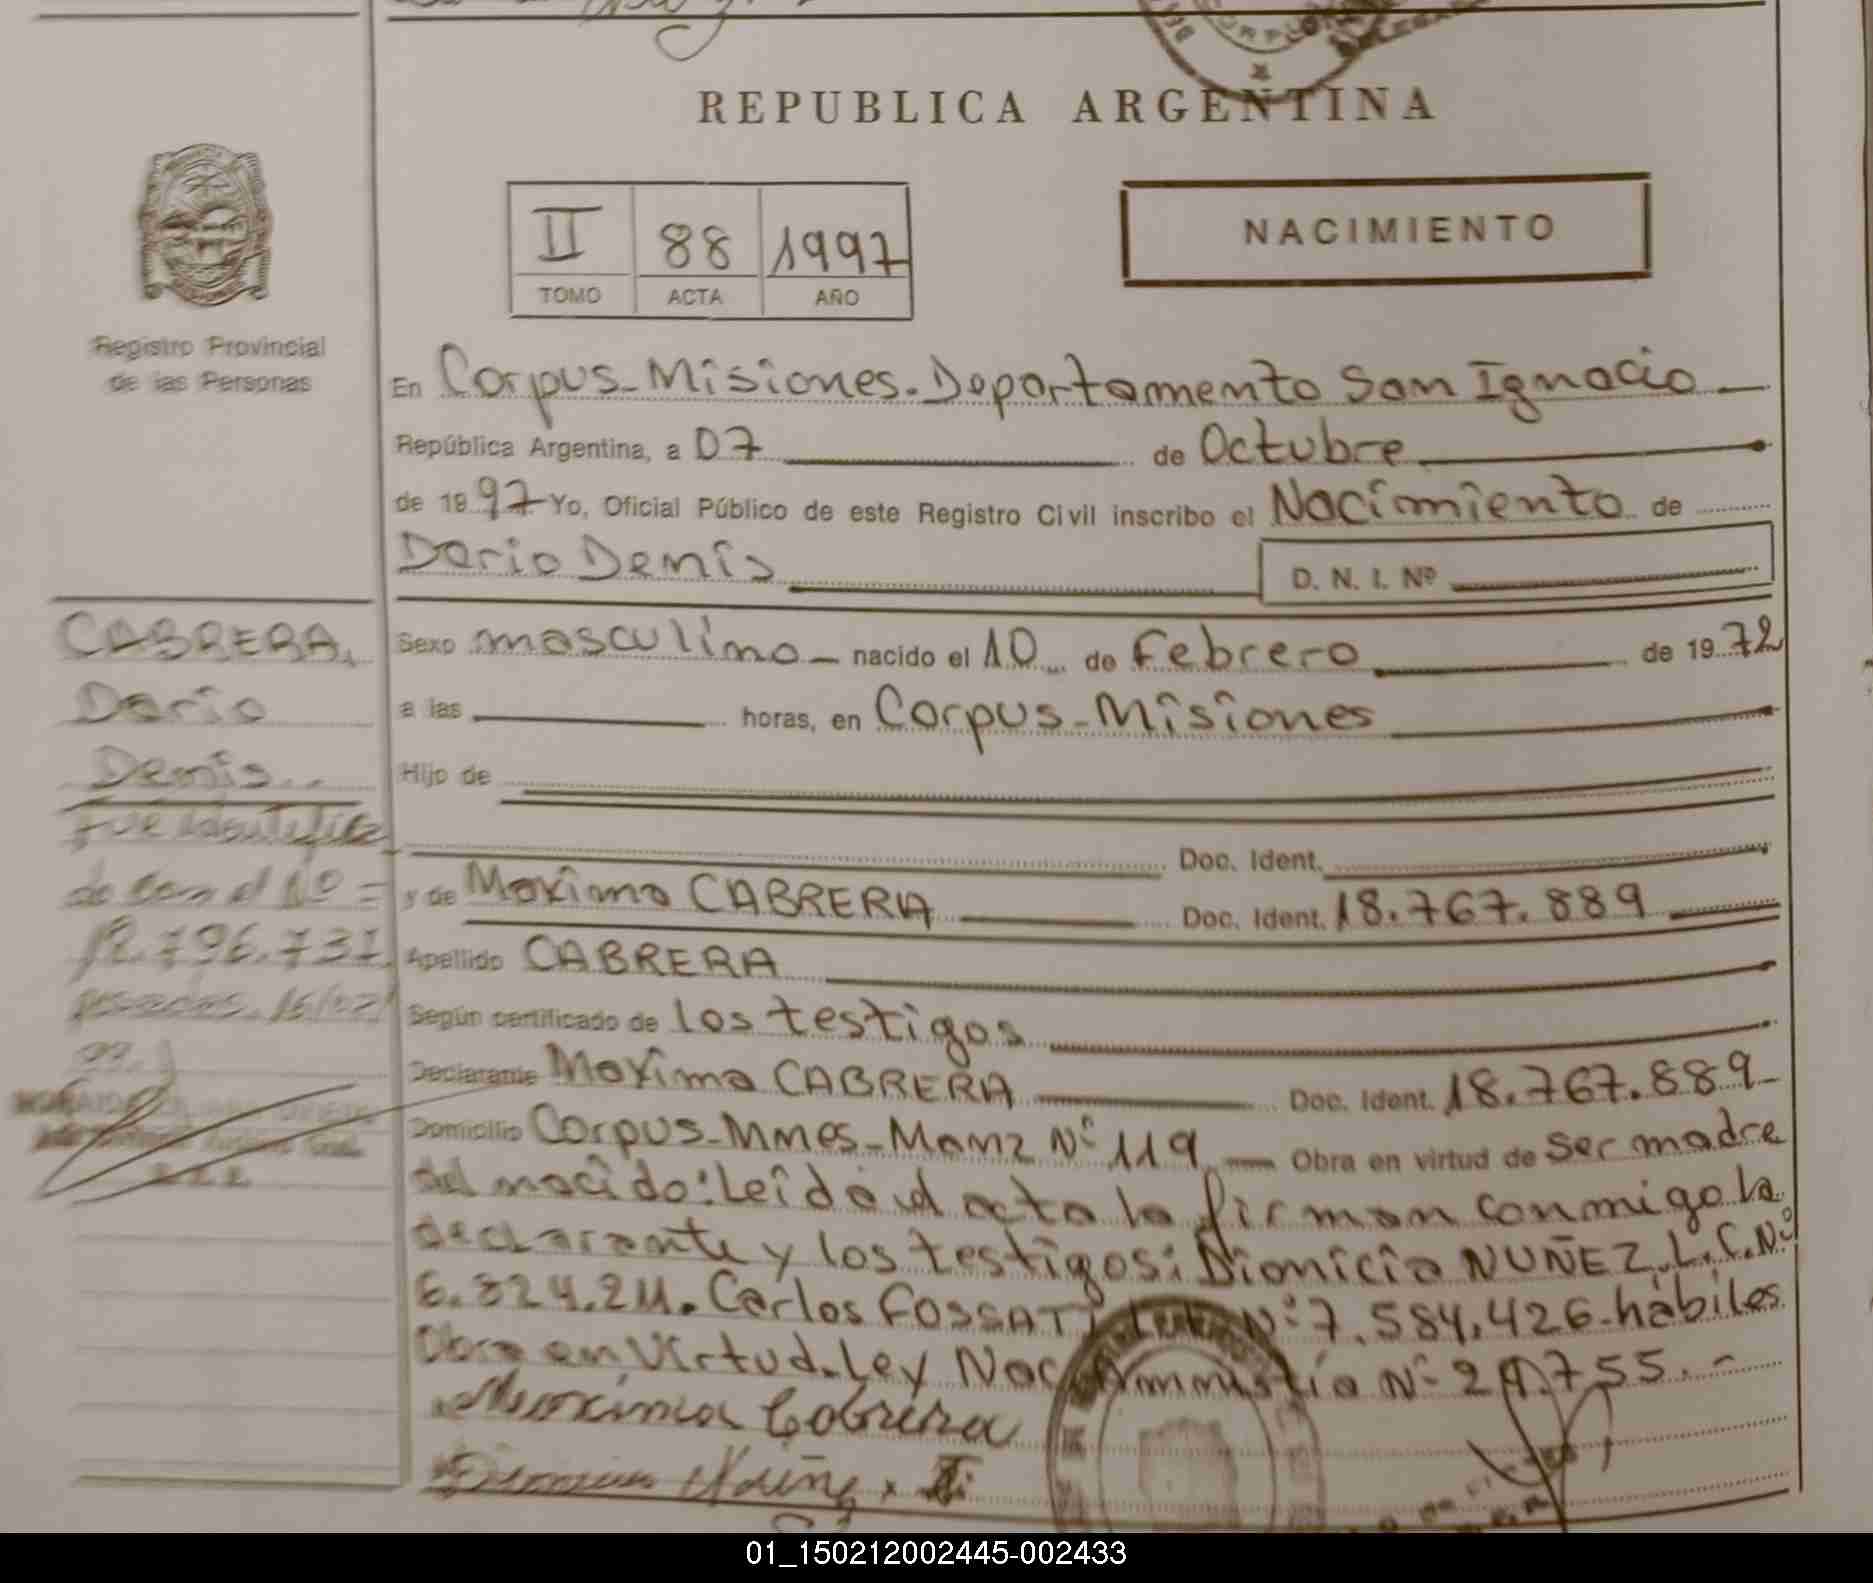 REPUBLICA ARGENTINA
II 88 1997
TOMO ACTA AÑO
NACIMIENTO
Registro Provincial
de las Personas
En Corpus-Misiones-Departamento San Ignacio
República Argentina, a 07 de Octubre
de 1997 Yo, Oficial Público de este Registro Civil inscribo el Nacimiento de
Dario Denis D. N. I. Nº
Sexo masculino nacido el 10 de Febrero de 1972
a las horas, en Corpus-Misiones
Hijo de
Doc. Ident.
y de Maxima CABRERA Doc. Ident. 18.767.889
Apellido CABRERA
Según certificado de los testigos
Declarante Maxima CABRERA Doc. Ident. 18.767.889
Domicilio Corpus-Mnes-Manz Nº 119 Obra en virtud de ser madre
del nacido: Leída el acta la firman conmigo la
declarante y los testigos: Dionicia NUÑEZ. L.C.Nº
6.324.211. Carlos FOSSATI Nº 7.584.426-hábiles
Obra en Virtud-Ley Nac Amnistía Nº 24.755.-
Maxima Cabrera
CABRERA,
Dario
Denis
Fue identifica
do con el Nº =
18.796.731
posadas, 16/02/
99.
01_150212002445-002433